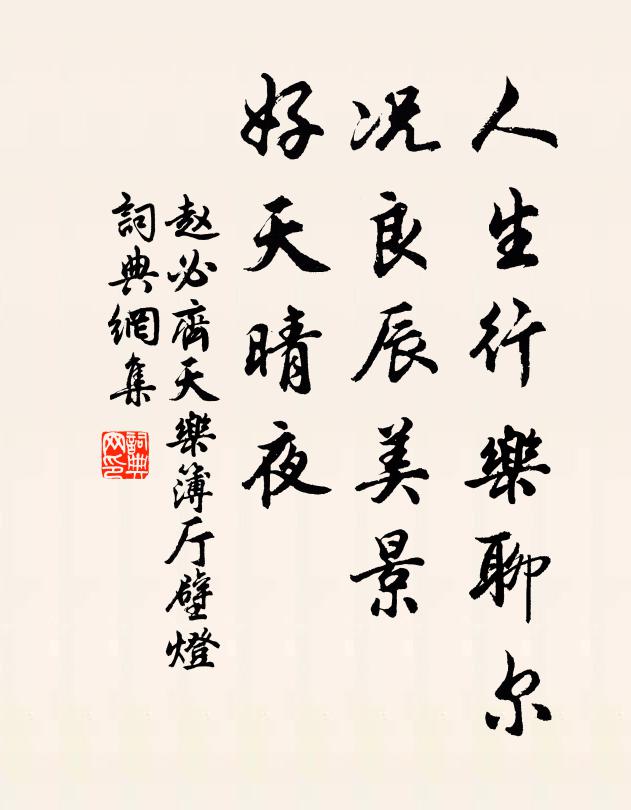 人生行樂聊尔
况良辰美景
好天晴夜
赵必齊天樂簿厅壁燈
詞典網集
詞典網印